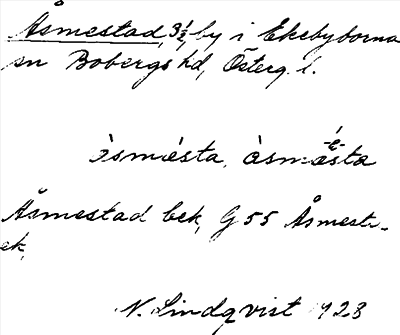 Åsmestad, 3½, by i Ekebyborna
sn Bobergs hd, Österg. l.
òsmésta, òsmésta
-é-
Åsmestad bek, G 55 Åsmest-
ek,
N. Lindqvist 1928